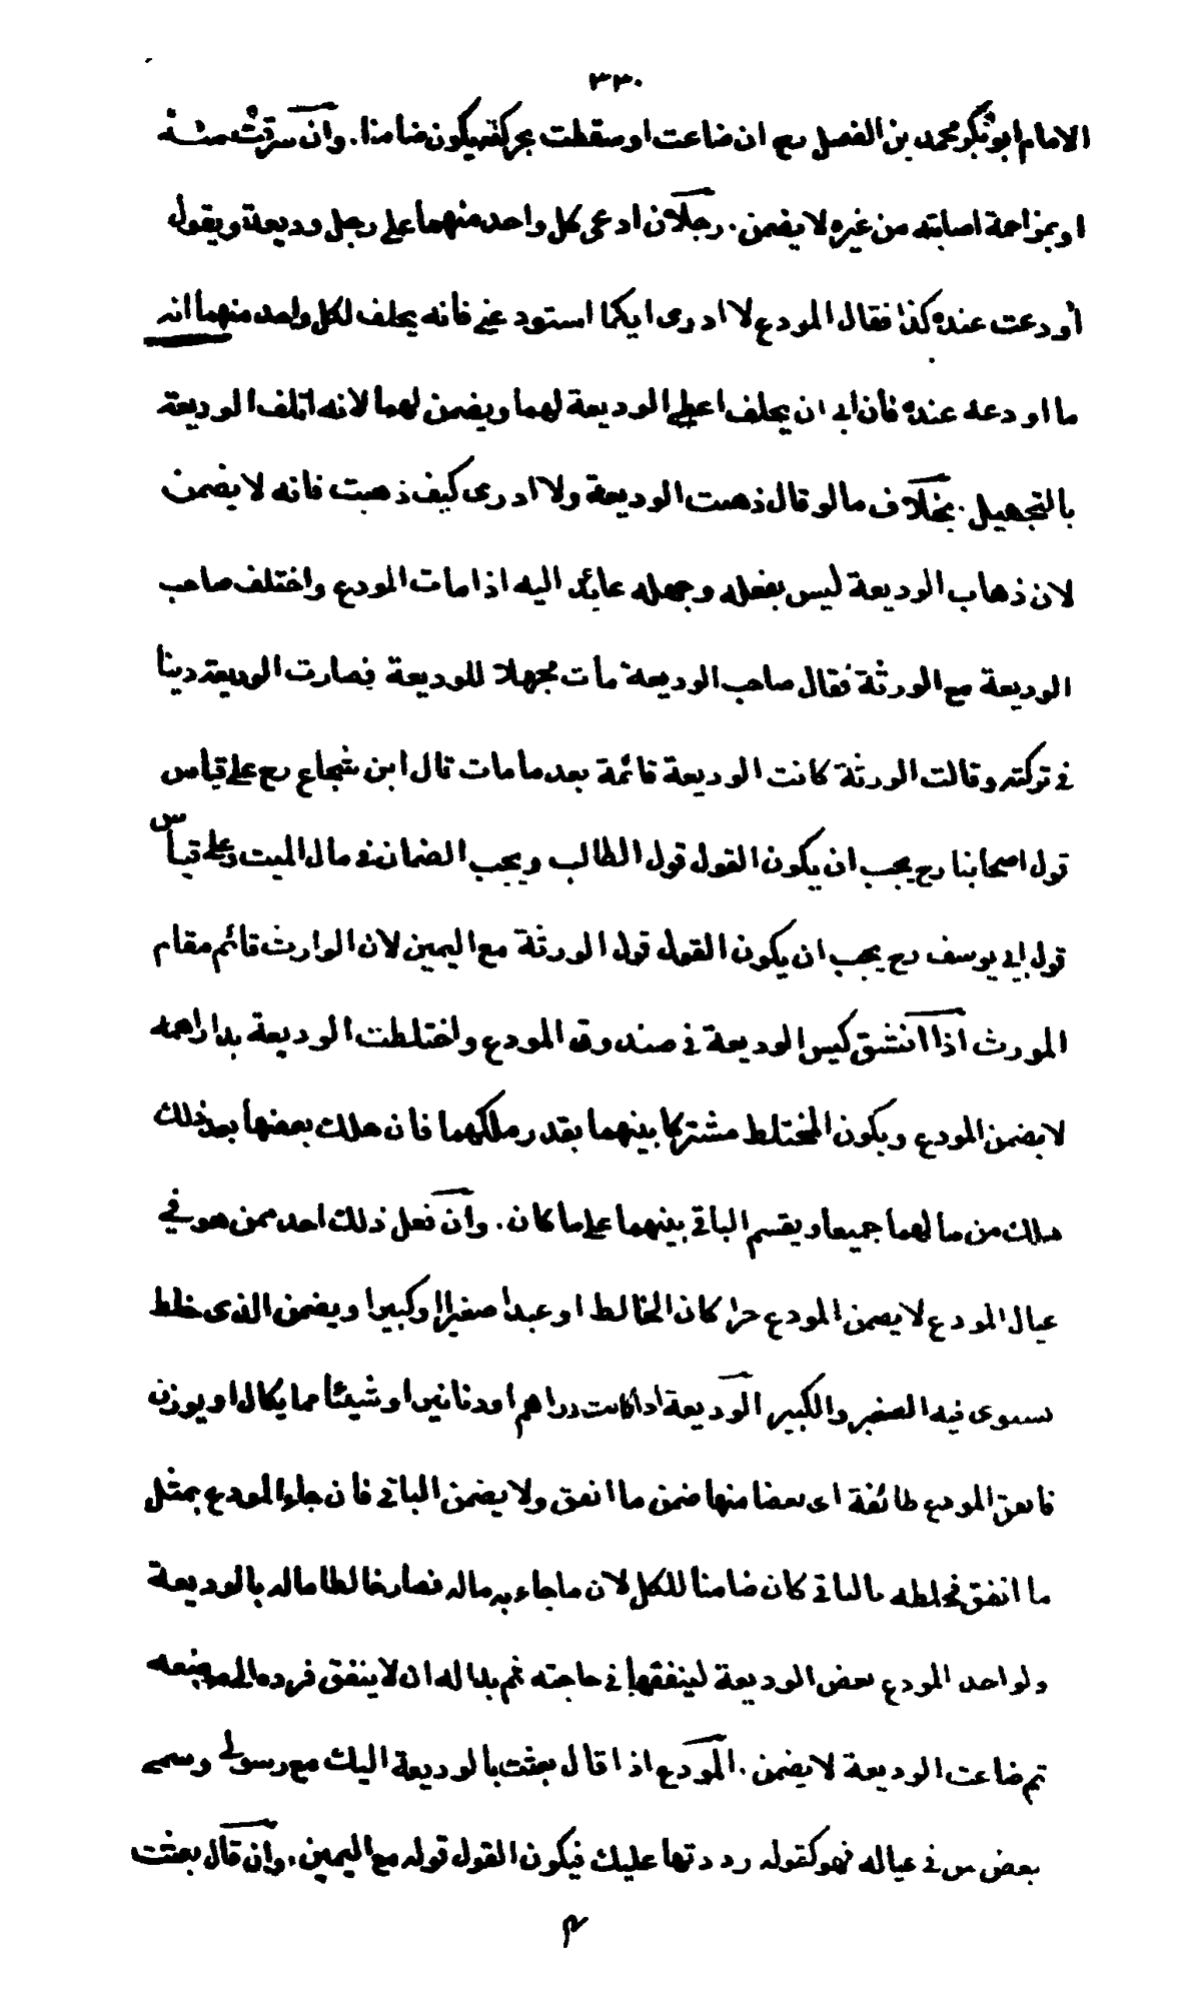 ٣٣٠
الامام ابو بكر محمد بن الفضل رح ان ضاعت او سقطت بحركته يكون ضامنا. وان سرقت منه
او بمزاحمة اصابته من غيره لا يضمن. رجلان ادعى كل واحد منهما على رجل وديعة ويقول
أودعت عنده كذا فقال المودع لا ادرى ايكما استودعني فانه يحلف لكل واحد منهما انه
ما اودعه عنده فان ابى ان يحلف اعطى الوديعة لهما ويضمن لهما لانه اتلف الوديعة
بالتجهيل. بخلاف ما لو قال ذهبت الوديعة ولا ادرى كيف ذهبت فانه لا يضمن
لان ذهاب الوديعة ليس بفعله وجهله عائد اليه اذا مات المودع واختلف صاحب
الوديعة مع الورثة فقال صاحب الوديعة مات مجهلا للوديعة فصارت الوديعة دينا
في تركته وقالت الورثة كانت الوديعة قائمة بعد ما مات قال ابن شجاع رح على قياس
قول اصحابنا رح يجب ان يكون القول قول الطالب ويجب الضمان في مال الميت وعلى قياس
قول ابي يوسف رح يجب ان يكون القول قول الورثة مع اليمين لان الوارث قائم مقام
المورث اذا انشق كيس الوديعة في صندوق المودع واختلطت الوديعة بدراهمه
لا يضمن المودع ويكون المختلط مشتركا بينهما بقدر ملكهما فان هلك بعضها بعد ذلك
هلك من مالهما جميعا ويقسم الباقي بينهما على ما كان. وان فعل ذلك احد ممن هو في
عيال المودع لا يضمن المودع حرا كان الخالط او عبدا صغيرا او كبيرا ويضمن الذى خلط
يستوى فيه الصغير والكبير الوديعة اذا كانت دراهم او دنانير او شيئا مما يكال او يوزن
فانفق المودع طائفة اى بعضا منها ضمن ما انفق ولا يضمن الباقي فان جاء المودع بمثل
ما انفق فخلطه بالباقي كان ضامنا للكل لان ما جاء به ماله فصار خالطا ماله بالوديعة
ولو اخذ المودع بعض الوديعة لينفقها في حاجته ثم بدا له ان لا ينفق فرده الى موضعه
ثم ضاعت الوديعة لا يضمن. المودع اذا قال بعثت بالوديعة اليك مع رسولي وسمى
بعض من في عياله فهو كقوله رددتها عليك فيكون القول قوله مع اليمين. وان قال بعثت